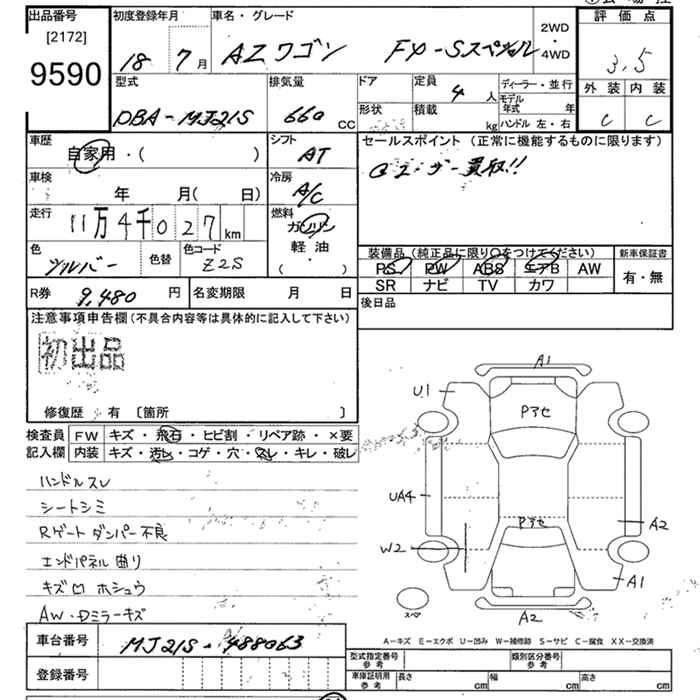 出品番号 初度登録年月 車名・グレード 2WD・4WD 評価点
[2172]
9590
18 7月 AZワゴン FX-Sスペシャル 3.5
型式 排気量 ドア 定員 4人 ディーラー・並行 外装 内装
形状 積載 kg モデル年式 年
DBA-MJ21S 660 CC ハンドル 左・右 C C
車歴 シフト セールスポイント (正常に機能するものに限ります)
自家用・( ) AT
車検 冷房 ユーザー買取!!
年 月(日) A/C
走行 11万4千027km 燃料 ガソリン 軽油 ( )
色 シルバー 色替 色コード Z2S
装備品 (純正品に限り○をつけてください) 新車保証書
PS PW ABS エアB AW 有・無
SR ナビ TV カワ
R券 9,480円 名変期限 月 日 後日品
注意事項申告欄 (不具合内容等は具体的に記入して下さい)
初出品
修復歴 有 〔箇所 〕
検査員 FW キズ・飛石・ヒビ割・リペア跡・×要
記入欄 内装 キズ・汚レ・コゲ・穴・スレ・キレ・破レ
ハンドルスレ
シートシミ
Rゲートダンパー不良
エンドパネル曲り
キズ凹 ホシュウ
AW・Dミラーキズ
A1
U1
Pアセ
UA4
Pアセ
A2
W2
A1
スペア
A2
A-キズ E-エクボ U-凹み W-補修跡 S-サビ C-腐食 XX-交換済
車台番号 MJ21S-488063
登録番号
型式指定番号 参考 類別区分番号 参考
車庫証明用 参考 長さ cm 幅 cm 高さ cm